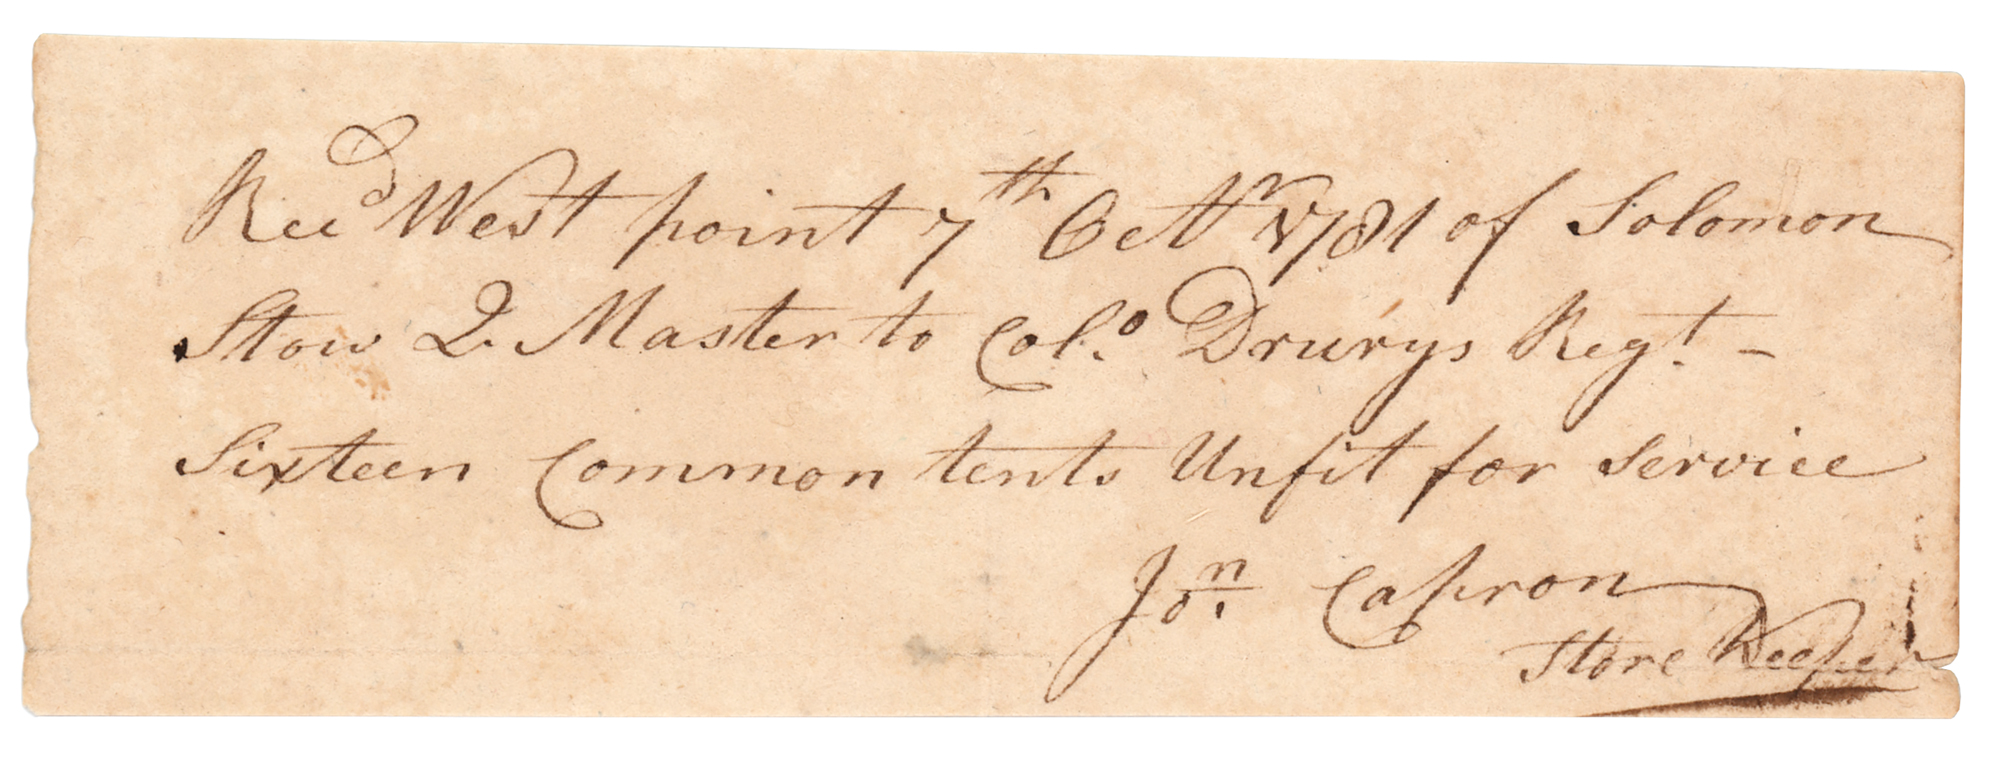 Recd West point 7th Octr 1781 of Solomon
Stow Q. Master to Col.o Drurys Regt. –
Sixteen Common tents Unfit for service
Jon. Capron
Store Keeper